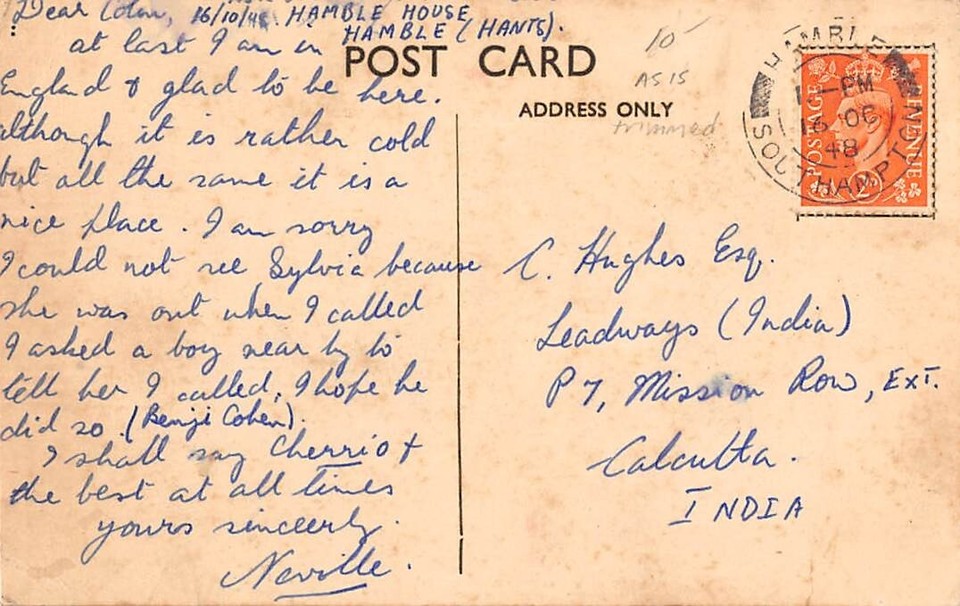 Dear Colin, 16/10/48 HAMBLE HOUSE
HAMBLE (HANTS).
at last I am in
England & glad to be here.
although it is rather cold
but all the same it is a
nice place. I am sorry
I could not see Sylvia because
she was out when I called
I asked a boy near by to
tell her I called, I hope he
did so. (Benji Cohen).
I shall say Cherrio &
the best at all times
yours sinceerly.
Neville.
POST CARD
ADDRESS ONLY
10-
AS IS
trimmed
HAMBLE
PM
16 OC
48
SOUTHAMPTON
POSTAGE
REVENUE
C. Hughes Esq.
Leadways (India)
P7, Mission Row, EXT.
Calcutta.
INDIA